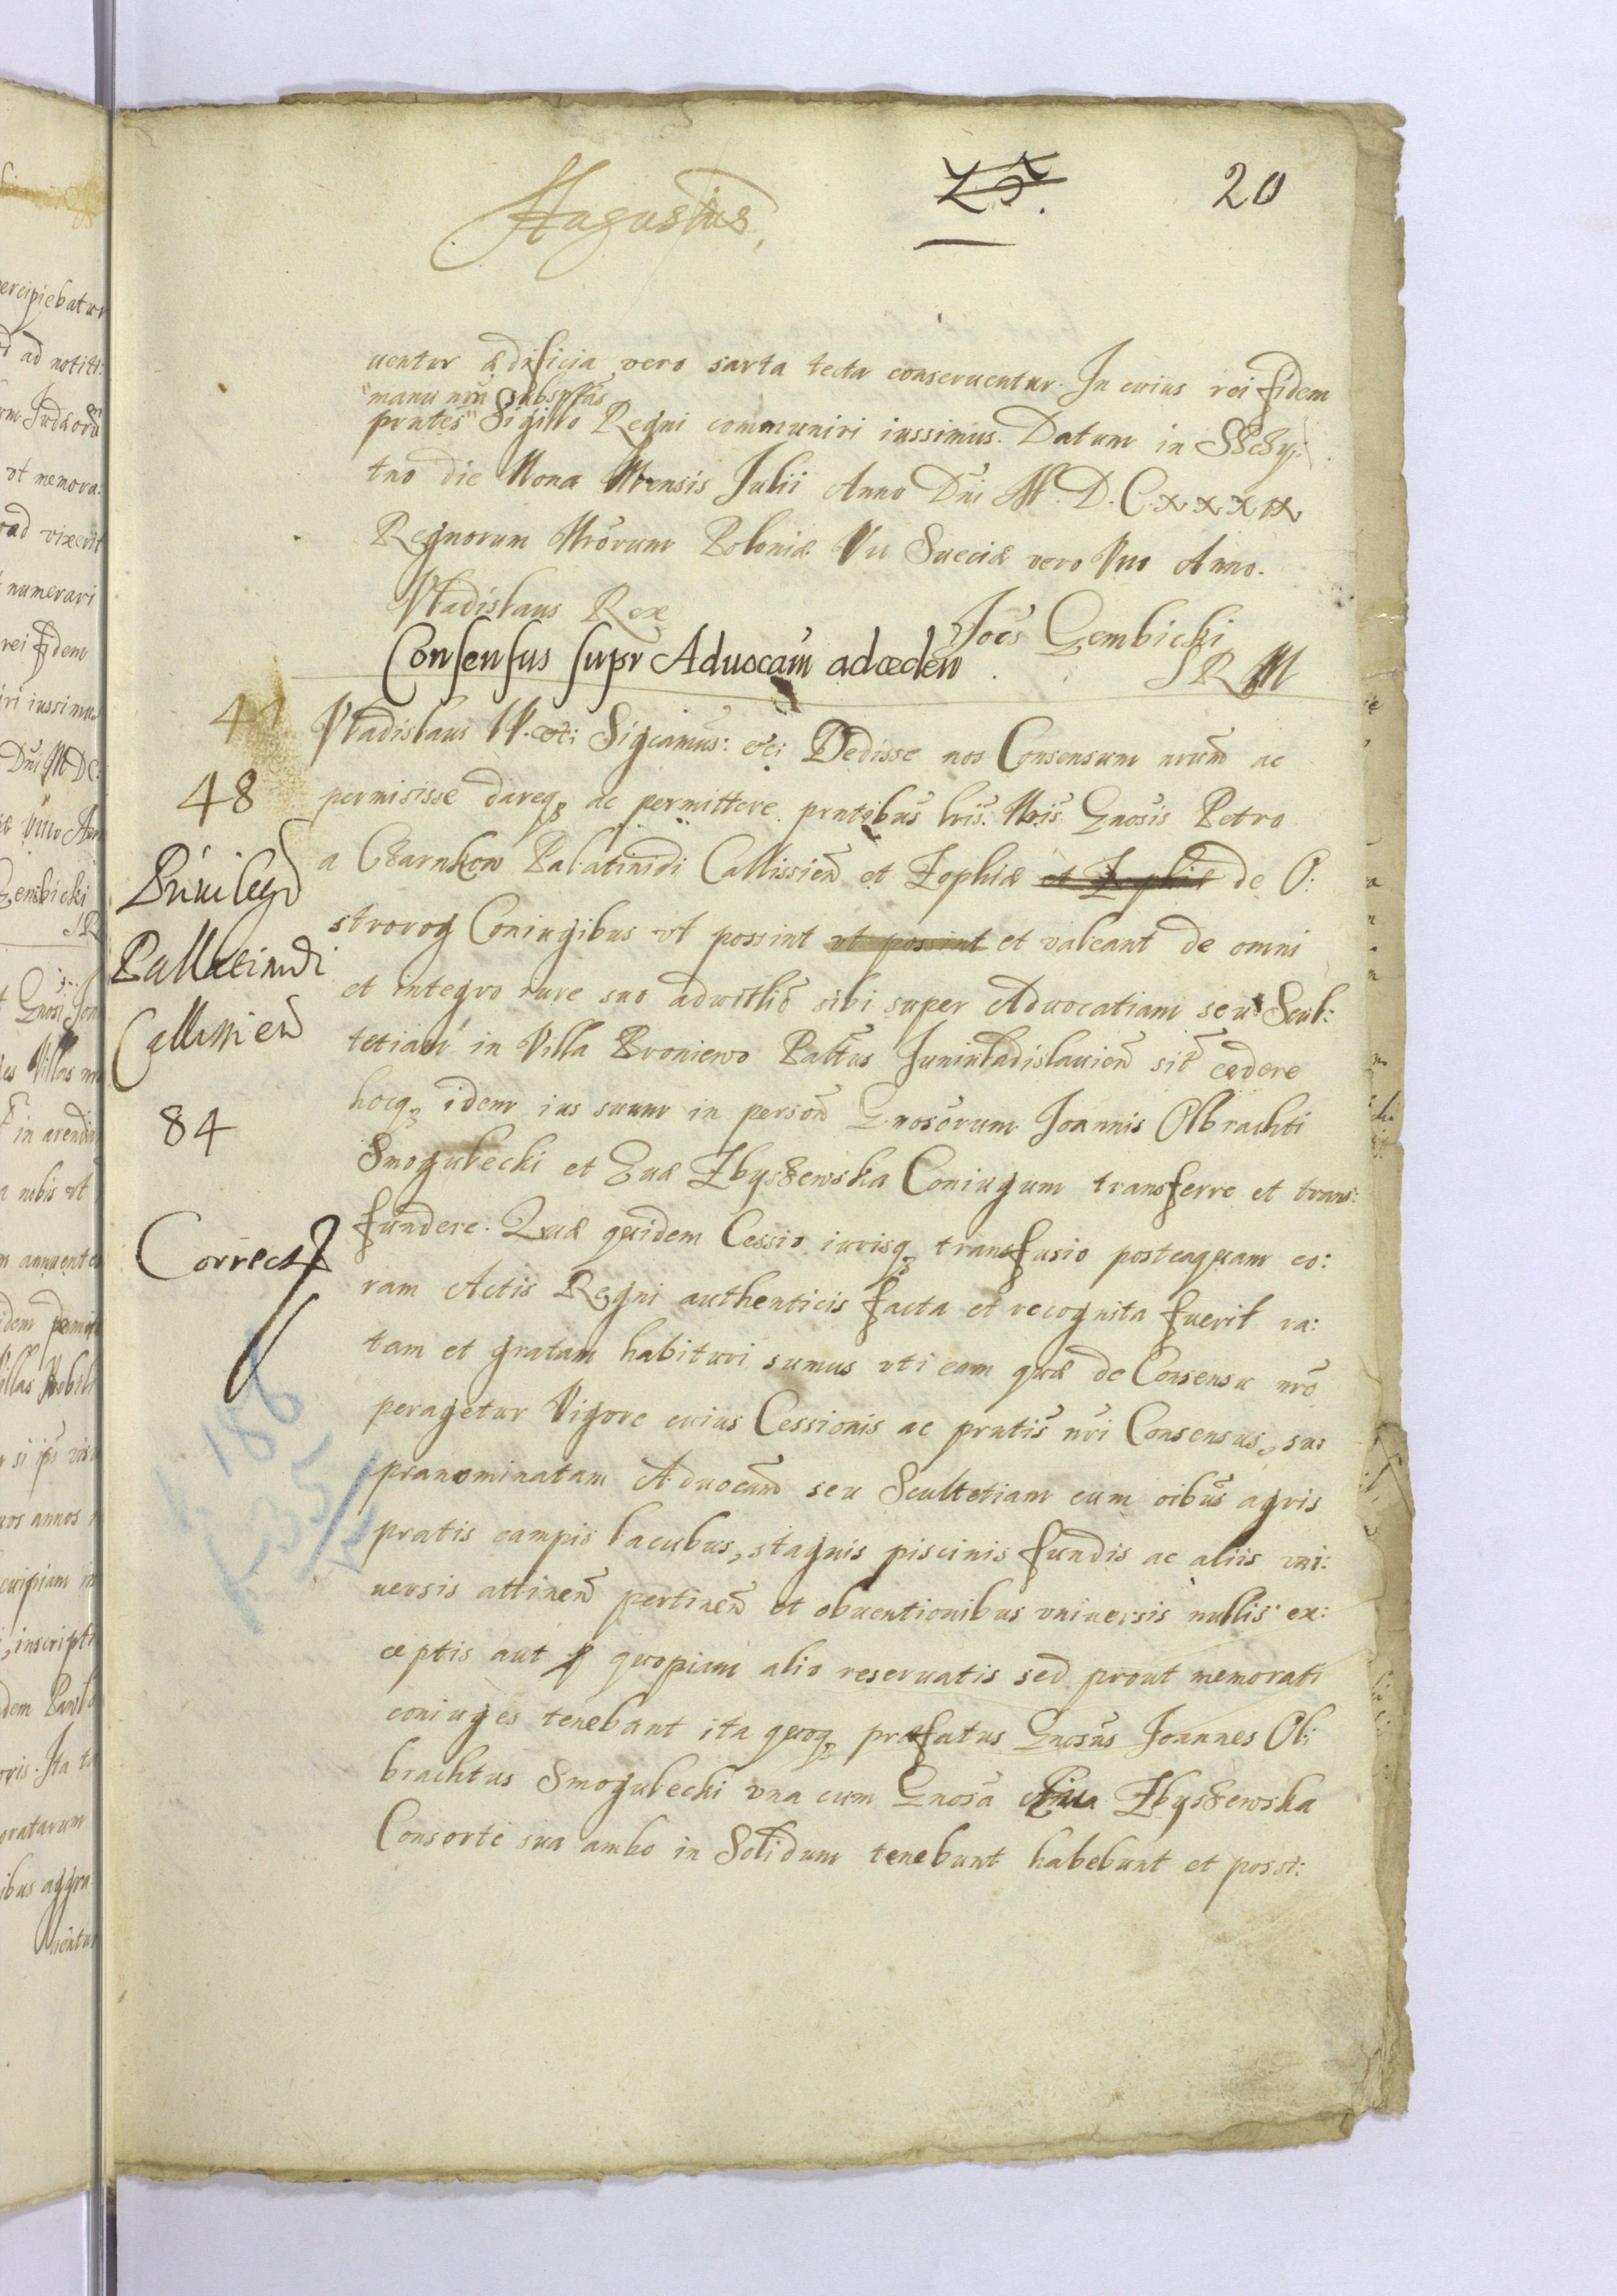 Augustus
20
uentur ædificia vero sarta tecta conseruentur. In cuius rei fidem
manu nrã subsptas
pntes Sigillo Regni communiri iussimus. Datum in
tno die Nona Mensis Julii Anno Dni M.D.C.XXXIX
Regnorum Nrorum Poloniæ VII Sueciæ vero VIII Anno.
Vladislaus Rex
Joes Gembicki
Consensus supr Aduocam ad cæden
S R M
Vladislaus IV. etc: Sigcamus: etc: Dedisse nos Consensum nrum ac
48
permisisse dareq3 ac permittere pntibus lris Nris Gnosis Petro
a Czarnkow Palatinidi Callissien et Zophiæ et Zophiæ de O:
Priuilegd
strorog Coniugibus vt possint vt possint et valeant de omni
Pallatinidi
et integro iure suo aduitlio sibi super Aduocatiam seu Scul:
Callissien
tetiam in Villa Broniewo Palttus Juniuladislauien sit cedere
84
hocq3 idem ius suum in person Gnosorum Joannis Olbrachti
Smogulecki et Euæ Zbyszewska Coniugum transferre et trans:
Correct
fundere. Quæ quidem Cessio iurisq3 transfusio posteaquam co:
ram Actis Regni authenticis facta et recognita fuerit ra:
tam et gratam habituri sumus vti eam quæ de Consensu nro
peragetur Vigore cuius Cessionis ac pntis nri Consensus, su:
186
pranominatam Aduocam seu Scultetiam cum oibus agris
pratis campis lacubus, stagnis piscinis fundis ac aliis vni:
uersis attinen pertinen et obuentionibus vniuersis nullis ex:
ceptis aut p quopiam alio reseruatis sed prout memorati
coniuges tenebant ita quoq3 præfatus Gnosus Joannes Ol:
brachtus Smogulecki vna cum Gnosa Eua Zbyszewska
Consorte sua ambo in Solidum tenebunt habebunt et possi: